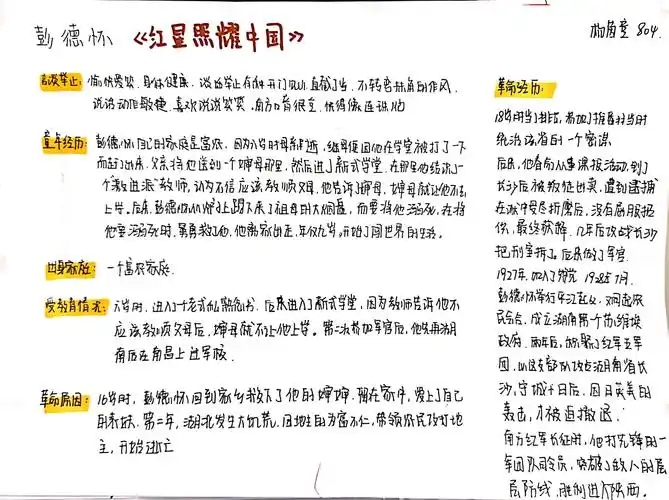 彭德怀 《红星照耀中国》
804
言谈举止: 愉快爱笑, 身体健康, 谈话举止有种开门见山、直截了当、不转弯抹角的作风,
说话动作敏捷, 喜欢说说笑笑,
童年经历: 彭德怀自己的家庭是富农, 因为六岁时母亲逝, 继母便因他在学堂被打了一下
父亲将他送到一个婶母那里, 然后进了新式学堂, 在那里他结识了一
个"激进派"教师, 认为不信应该孝顺父母, 他告诉婶母, 婶母就让他不去
上学。后来, 彭德怀从炉上踢下来了祖母的大烟盘, 而要将他溺死, 在将
他要溺死时, 舅舅救了他, 他离家出走, 年仅九岁, 开始了闯世界的生活。
出身家庭: 一个富农家庭.
受教育情况: 六岁时, 进入了老式私塾念书, 后来进入了新式学堂, 因为教师告诉他不
应该孝顺父母后, 婶母就不让他上学。第二次参加军官后, 他先再湖
南后在南昌上过军校.
革命原因: 16岁时, 彭德怀回到家乡 他的婶婶. 留在家中, 爱上了自己
的表妹. 第二年, 湖北发生大饥荒, 因地主的为富不仁, 带领农民攻打地
主, 开始逃亡
革命经历:
18岁时当了排长, 参加了推翻当时
统治该省的一个密谋.
后来, 他看向从事谍报活动, 到了
长沙后被叛徒出卖, 遭到逮捕
在狱中受尽折磨后, 没有屈服招
供, 最终获释. 几年后攻占长沙
把刑室拆了。后来做了军官.
1927年, 加入了党 1928年7月.
彭德怀举行平江起义, 又同起农
民会合, 成立湖南第一个苏维埃
政府. 两年后, 积聚了红军五军
团, 以这支部队攻占湖南省长
沙, 守城十日后, 因日英美的
轰击, 才被迫撤退.
南方红军长征时, 他打先锋的一
军团队司令员, 突破了敌人的层
层防线, 胜利进入陕西.